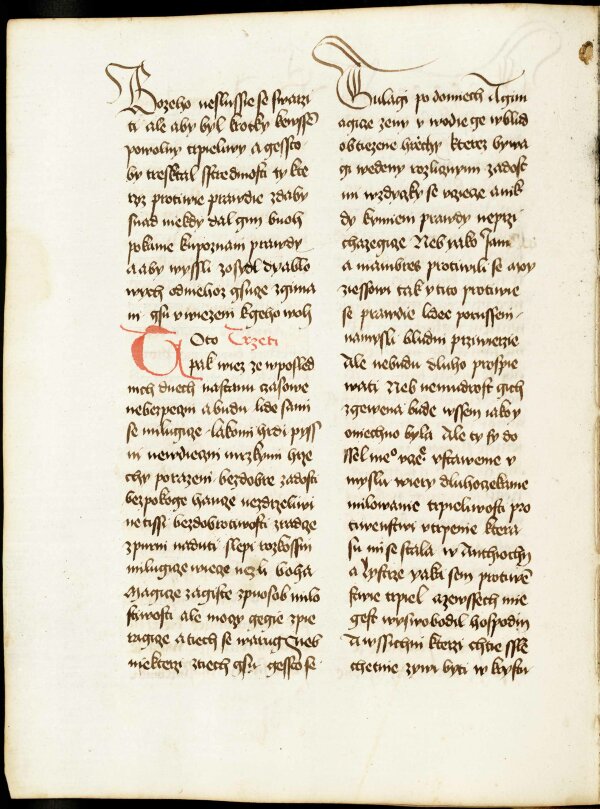 Bozeho neslussie se swarzi
ti ale aby byl krotky kewssem
powolny trpieliwy a gessto
by tresktal sstrednosti ty kte
rzz protiwie prawdie zdaby
snad niekdy dal gim buoh
pokanie kupoznani prawdy
a aby wyssli zosydl dyablo
wych odniehoz gsuze zgima
ni gsu uwiezeni kgeho woli
Toto Trzeti
pak wiez ze wposled
nich dnech nastanu czasowe
nebezpeczni a budu lide sami
se milugicze lakomi hrdi pyss
ni newdieczni mrzkymi hrze
chy porazeni bezdobre zadosti
bezpokoge hanze nezdrzeliwi
netissi bezdobrotiwosti zradcze
zpurni naduti slepi rozkossim
milugicze wiecze nezli boha
Magicze zagiste zpuosob milo
stiwosti ale moczy gegie zpie
ragicze a tiech se warug Neb
niekterzi ztiech gsu gessto se
Tulagi po domiech A gim
agicze zeny y wodie ge wblud
obtiezene hrziechy kterez bywa
gi wedeny rozlicznymi zadost
mi wzdyczky se vczecze a nik
dy kumieni prawdy neprzi
chazegicze Neb yako Jam
a mambres protiwili se moy
ziessowi tak y tito protiwie
se prawdie lidee porusseni
namysli bludni przi wierzie
Ale nebudu dluho prospie
wati Neb nemudrost gich
zgewena bude wssem iako y
oniechno byla Ale ty sy do
ssel meo vcze. vstawenie v
myslu wiery dluhoczekanie
milowanie trpieliwosti pro
tiwenstwi vtrpenie ktera
su mi se stala w Anthiochy
a Lystrze yaka sem protiwen
stwie trpiel a zewssech mie
gest wyswobodil hospodin
A wssichni kterzi chtie ssle
chetnie zywi byti w krystu